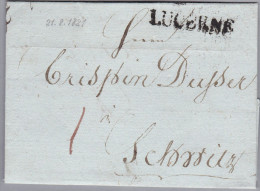 21.8.1829
LUCERNE
Herrn
Crispin Dusser
à
Schwitz